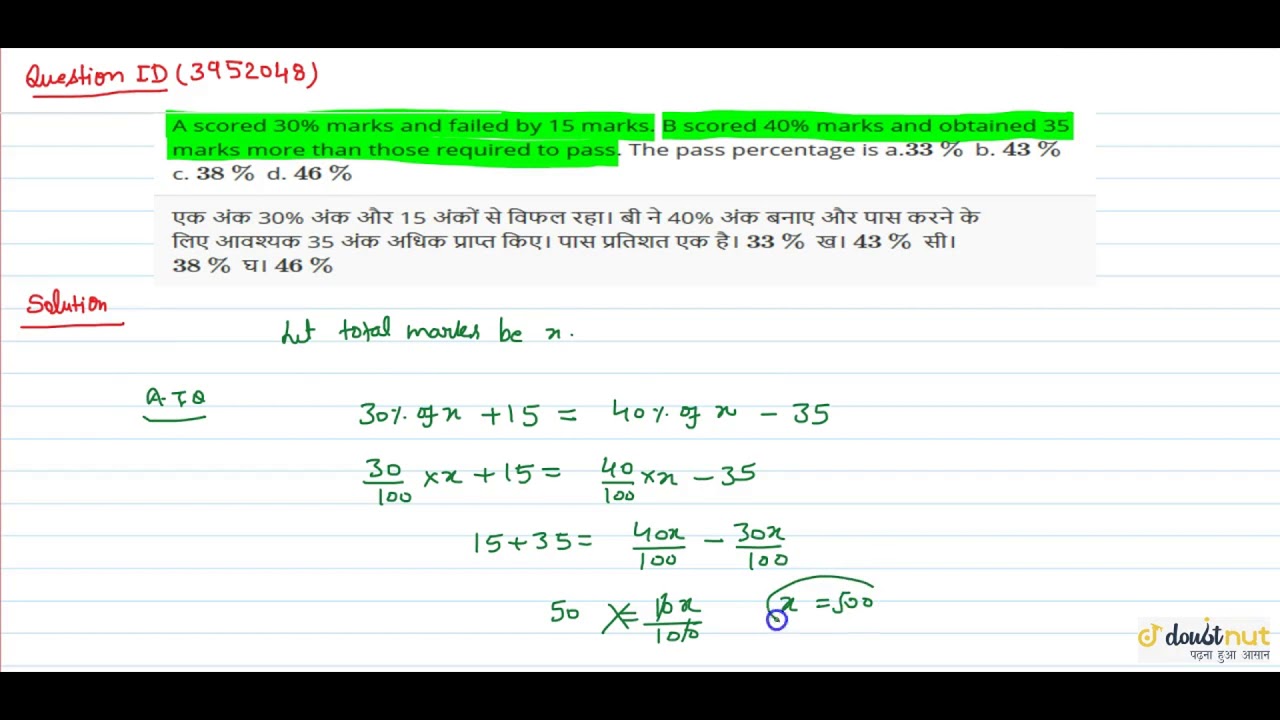 Question ID (3952048)
A scored 30% marks and failed by 15 marks. B scored 40% marks and obtained 35
marks more than those required to pass. The pass percentage is a.33 % b. 43 %
c. 38 % d. 46 %
एक अंक 30% अंक और 15 अंकों से विफल रहा। बी ने 40% अंक बनाए और पास करने के
लिए आवश्यक 35 अंक अधिक प्राप्त किए। पास प्रतिशत एक है। 33 % ख। 43 % सी।
38 % घ। 46 %
Solution
Let total marks be x.
A.T.Q
30% of x + 15 = 40% of x - 35
30/100 × x + 15 = 40/100 × x - 35
15 + 35 = 40x/100 - 30x/100
50 = 10x/100 x = 500
doubtnut
पढ़ना हुआ आसान